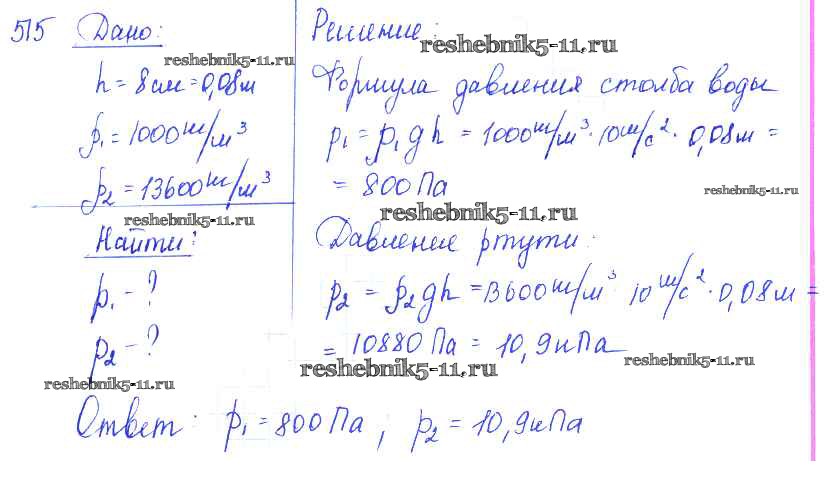 515 Дано:
reshebnik5-11.ru
h = 8 см = 0,08 м
ρ₁ = 1000 кг/м³
ρ₂ = 13600 кг/м³
reshebnik5-11.ru
Найти:
p₁ - ?
p₂ - ?
reshebnik5-11.ru
Решение:
reshebnik5-11.ru
Формула давления столба воды
p₁ = ρ₁gh = 1000 кг/м³ · 10 м/с² · 0,08 м =
= 800 Па
reshebnik5-11.ru
reshebnik5-11.ru
Давление ртути:
p₂ = ρ₂gh = 13600 кг/м³ · 10 м/с² · 0,08 м =
= 10880 Па = 10,9 кПа
reshebnik5-11.ru
reshebnik5-11.ru
Ответ: p₁ = 800 Па; p₂ = 10,9 кПа